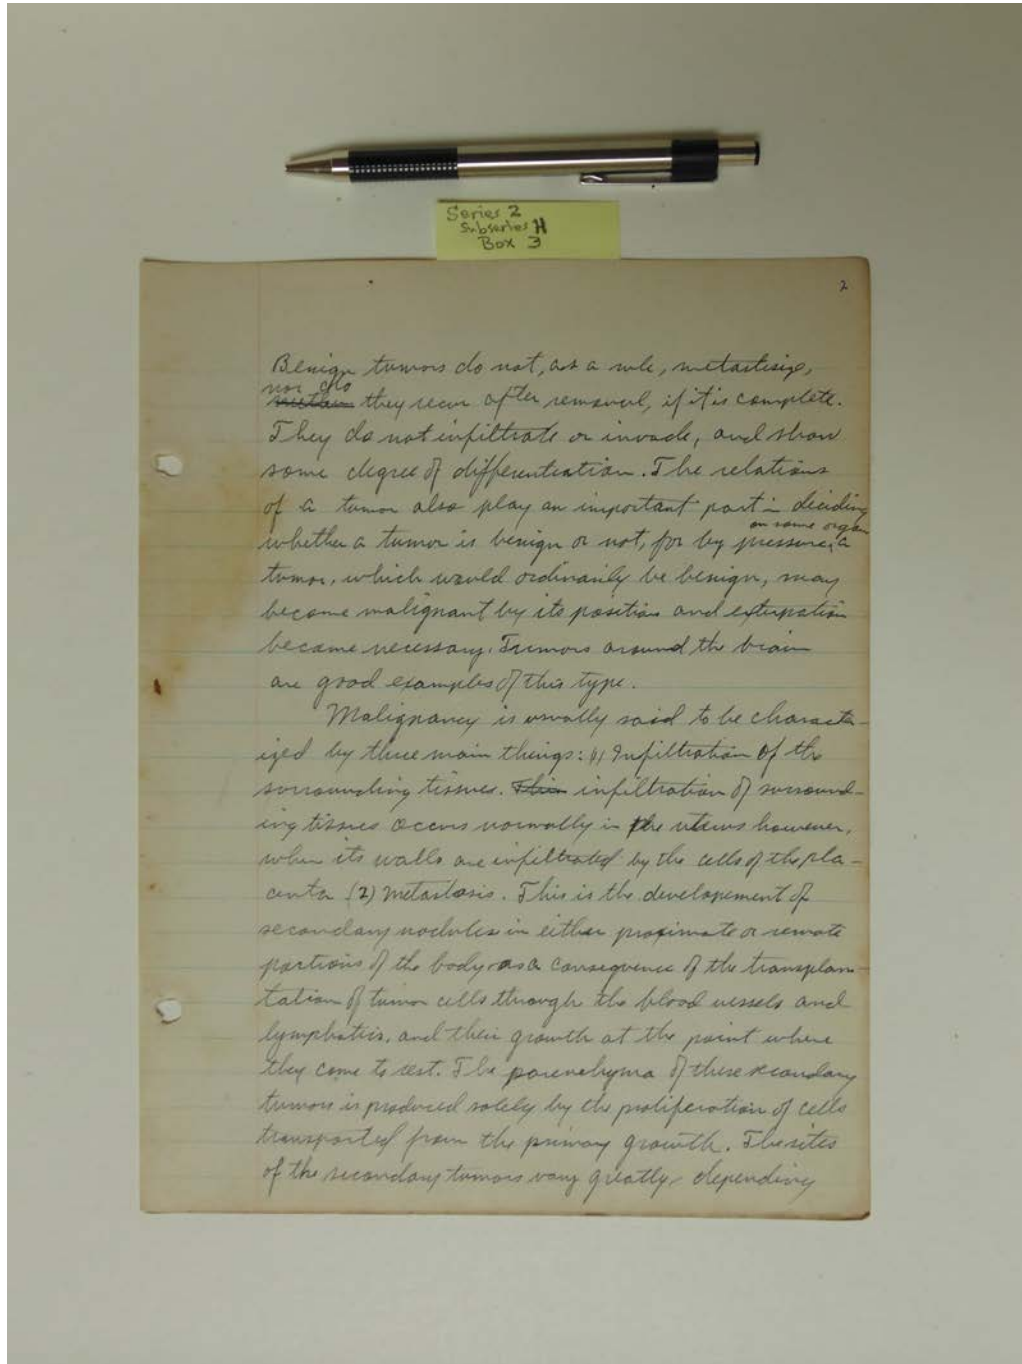 Series 2
Subseries H
Box 3
2
Benign tumors do not, as a rule, metastisize,
nor do
they recur after removal, if it is complete.
They do not infiltrate or invade, and show
some degree of differentiation. The relations
of a tumor also play an important part in deciding
on some organ
whether a tumor is benign or not, for by pressure, a
tumor, which would ordinarily be benign, may
become malignant by its position and extirpation
become necessary. Tumors around the brain
are good examples of this type.
Malignancy is usually said to be character-
ized by three main things: (1) Infiltration of the
surrounding tissues. This infiltration of surround-
ing tissues occurs normally in the uterus however,
when its walls are infiltrated by the cells of the pla-
centa (2) Metastasis. This is the developement of
secondary nodules in either proximate or remote
portions of the body as a consequence of the transplan-
tation of tumor cells through the blood vessels and
lymphatics, and their growth at the point where
they come to rest. The parenchyma of these secondary
tumors is produced solely by the proliferation of cells
transported from the primary growth. The sites
of the secondary tumors vary greatly, depending